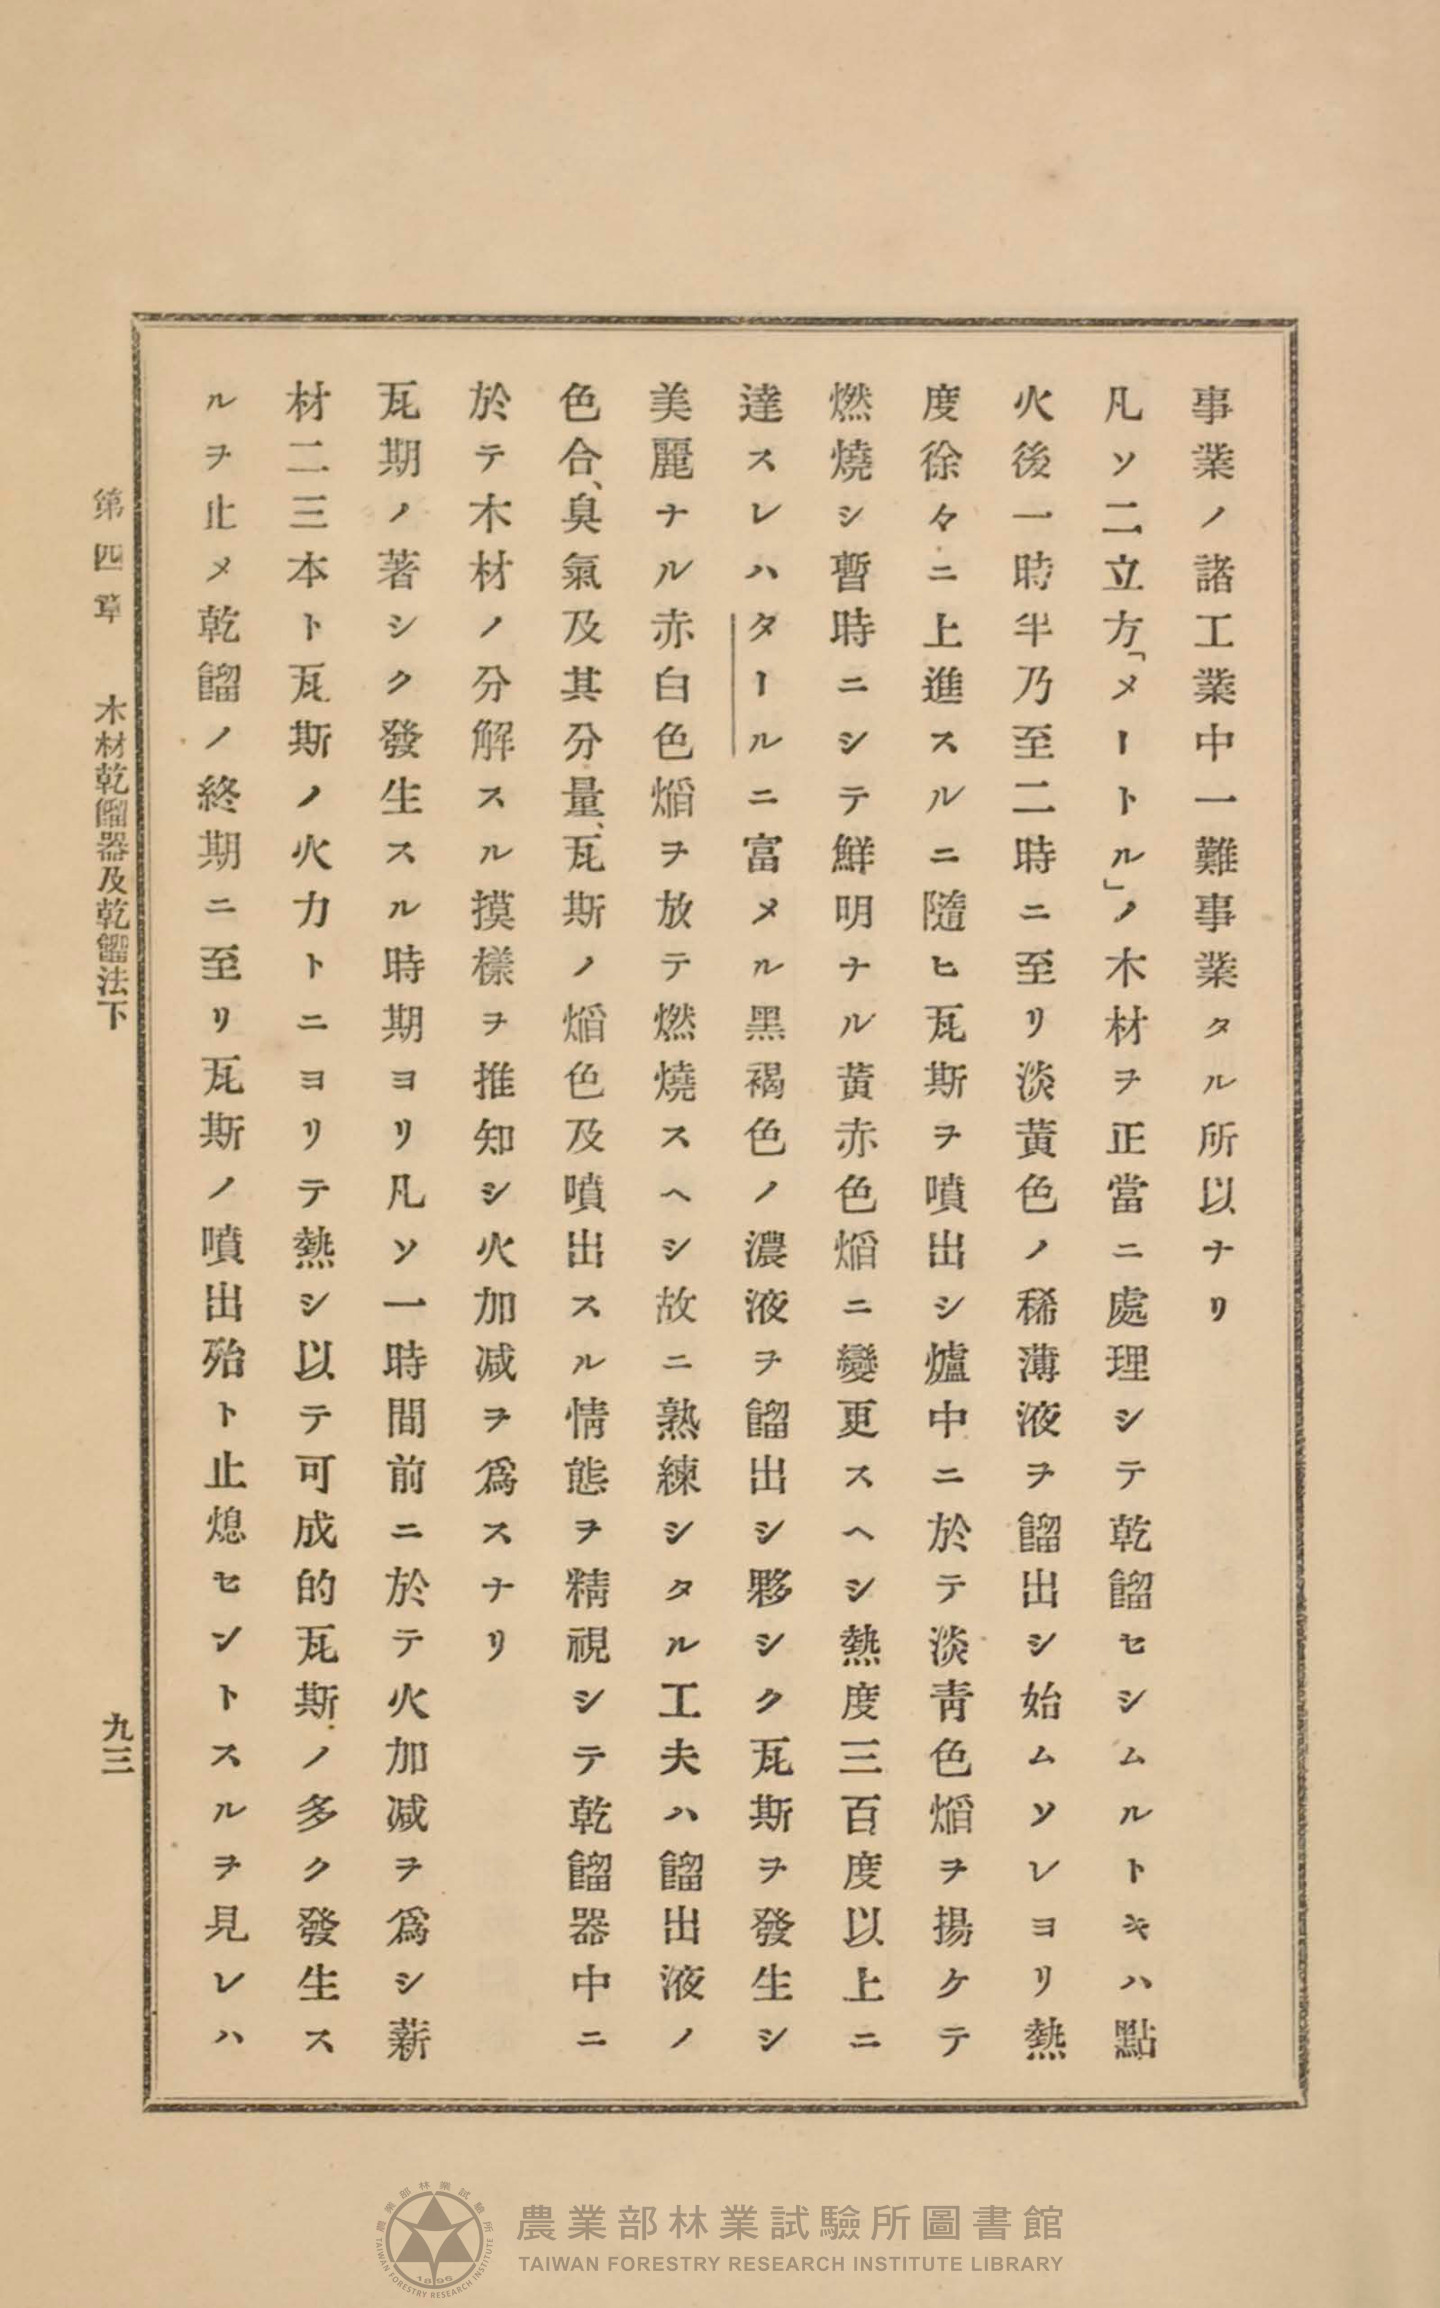 事業ノ諸工業中一難事業タル所以ナリ
凡ソ二立方「メートル」ノ木材ヲ正當ニ處理シテ乾餾セシムルトキハ點
火後一時半乃至二時ニ至リ淡黄色ノ稀薄液ヲ餾出シ始ムソレヨリ熱
度徐々ニ上進スルニ隨ヒ瓦斯ヲ噴出シ爐中ニ於テ淡青色焰ヲ揚ケテ
燃燒シ暫時ニシテ鮮明ナル黄赤色焰ニ變更スヘシ熱度三百度以上ニ
達スレハタールニ富メル黑褐色ノ濃液ヲ餾出シ夥シク瓦斯ヲ發生シ
美麗ナル赤白色焰ヲ放テ燃燒スヘシ故ニ熟練シタル工夫ハ餾出液ノ
色合、臭氣及其分量、瓦斯ノ焰色及噴出スル情態ヲ精視シテ乾餾器中ニ
於テ木材ノ分解スル摸樣ヲ推知シ火加減ヲ爲スナリ
瓦期ノ著シク發生スル時期ヨリ凡ソ一時間前ニ於テ火加減ヲ爲シ薪
材二三本ト瓦斯ノ火力トニヨリテ熱シ以テ可成的瓦斯ノ多ク發生ス
ルヲ止メ乾餾ノ終期ニ至リ瓦斯ノ噴出殆ト止熄セントスルヲ見レハ
第四章 木材乾餾器及乾餾法下
九三
農業部林業試驗所圖書館
TAIWAN FORESTRY RESEARCH INSTITUTE LIBRARY
農業部林業試驗所
TAIWAN FORESTRY RESEARCH INSTITUTE
1896